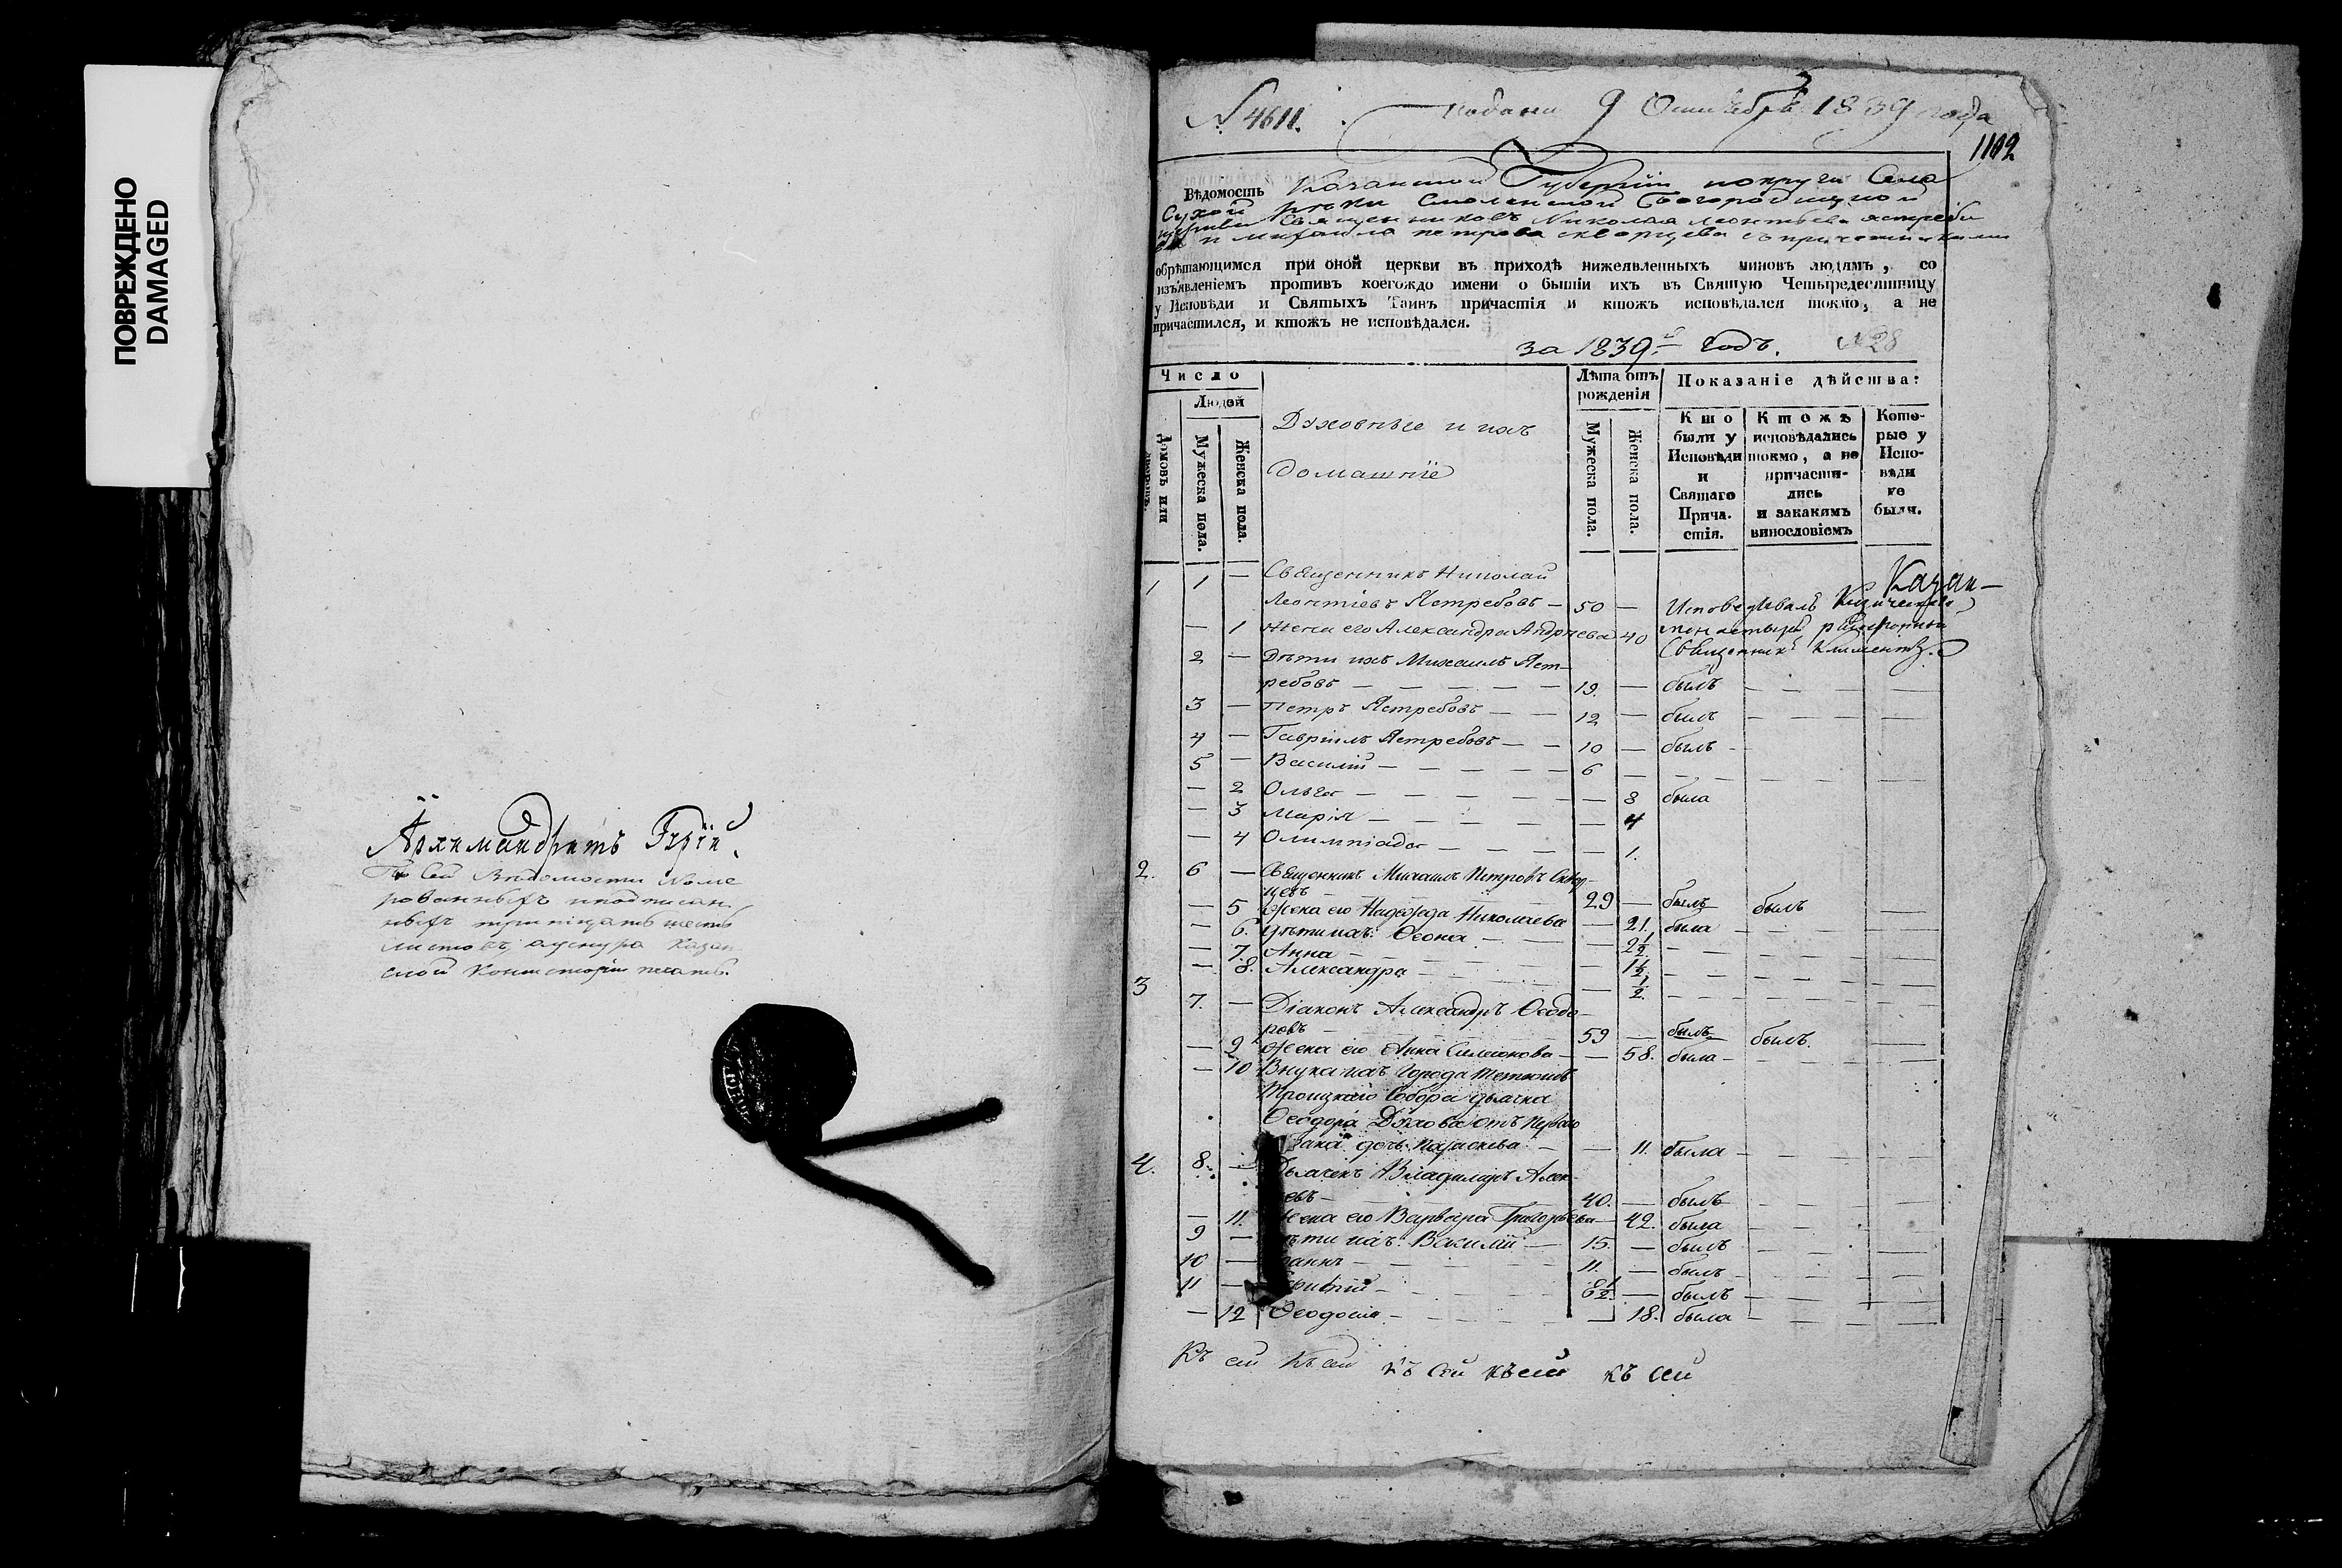 ПОВРЕЖДЕНО
DAMAGED
Архимандритъ Гурiй.
По сей Ведомости номе
рованныхъ и подписан
ныхъ тритцать шесть
листовъ, а у снура Казан
ской Консисторiи печать.
№ 4611. подана 9 Октября 1839 года
1102
Вѣдомость Казанской Губернiи и округи Села
Сухой рѣки Смоленской Богородицкой
церкви Священниковъ Николая Леонтьева Ястребо
ва и Михаила Петрова Скворцова съ причетниками
обрѣтающимся при оной церкви въ приходѣ нижеявленныхъ чиновъ людямъ, со
изъявленiемъ противъ коегождо имени о бытiи ихъ въ Святую Четыредесятницу
у Исповѣди и Святыхъ Таинъ причастiя и ктожъ исповѣдался токмо, а не
причастился, и ктожъ не исповѣдался.
за 1839й годъ. №28
Число
Людей
Домовъ или
Мужеска пола.
Женска пола.
Духовные и ихъ
домашнiе
Лѣта отъ
рожденiя
Мужеска пола.
Женска пола.
Показанiе дѣйства:
Кто
были у
Исповѣди
и
Святаго
Прича-
стiя.
Ктожъ
исповѣдались
токмо, а не
причасти-
лись
и закакимъ
винословiемъ
Кото-
рые у
Испо-
вѣди
не
были.
1 1 — Священникъ Николай Казан-
Леонтiевъ Ястребовъ — 50 — Исповедывалъ Кизическаго
— 1 жена его Александра Андреева 40 монастыря
Священникъ Климентъ.
2 — Дѣти ихъ Михаилъ Яст-
ребовъ — 19. — былъ
3 — Петръ Ястребовъ — 12 — былъ
4 — Гаврiилъ Ястребовъ — 10 — былъ
5 — Василiй — 6 —
— 2 Ольга — — 8 была
— 3 Марiя — — 4
— 4 Олимпiада — — 1.
2. 6 — Священникъ Михаилъ Петровъ Сквор-
цевъ — 29 — былъ былъ —
— 5 Жена его Надежда Николаева — 21. была
— 6. Дѣти ихъ: Ѳеона — — 2½
— 7. Анна — — 1½
— 8. Александра — — ½
3 7. — Дiаконъ Александръ Ѳеодо-
ровъ — 59 — былъ былъ. —
— 9 Жена его Анна Симеонова — — 58. была —
— 10 Внука ихъ города Тетюшъ
Троицкаго Собора дьячка
Ѳеодора Духова отъ перваго
брака дочь Параскева — — 11. была —
4. 8. — Дьячекъ Владимиръ Алек-
— 40. — былъ
— 11. Жена его Варвара Григорьева — 42. была
9 — Дѣти ихъ: Василiй — 15. — былъ
10 — Iоаннъ — 11. — былъ
11 — — 8½ — былъ
— 12 Ѳеодосiя — — 18. была
Къ сей Къ сей къ сей къ сей къ сей